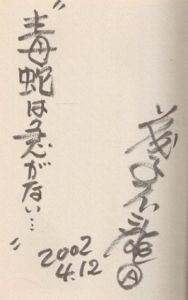 〝毒蛇は急がない…〟
2002
4.12